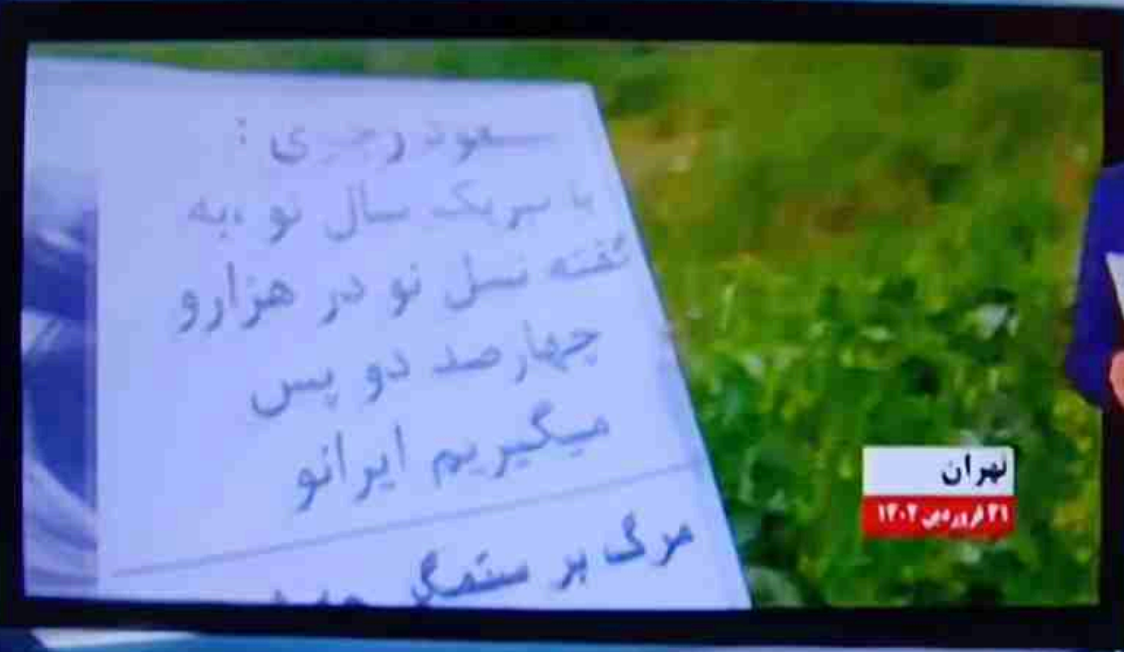 مسعود رجوی :
با تبریک سال نو ،به
گفته نسل نو در هزارو
چهارصد دو پس
میگیریم ایرانو
مرگ بر ستمگر
تهران
۲۱ فروردین ۱۴۰۲